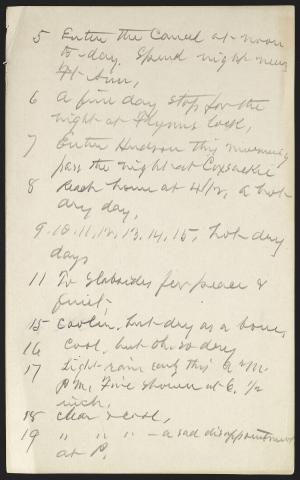 5 Enter the Canal at noon
to-day. Spend night near
Ft Ann,
6 A fine day, stop for the
night at Flynns lock,
7 Enter Hudson this morning
pass the night at Coxsackie
8 Reach home at 4 1/2, a hot
dry day,
9, 10, 11, 12, 13, 14, 15, hot dry
days
11 To Slabsides for peace &
quiet,
15 coolin, but dry as a bone,
16 cool, but oh so dry
17 Light rain early this A.M.
P.M. Fine shower at 6, 1/2
inch,
18 clear & cool,
19 " " " - a sad disappointment
at P.